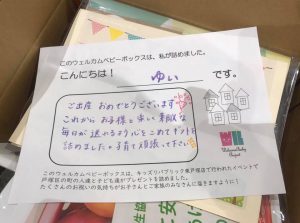 このウェルカムベビーボックスは、私が詰めました。
こんにちは！ ゆい です。
ご出産 おめでとうございます
これから お子様と 楽しい 素敵な
毎日が 送れるよう 心をこめて ギフトを
詰めました。子育て頑張って下さい
Welcome Baby
Project
このウェルカムベビーボックスは、キッズリパブリック東戸塚店で行われたイベントで
戸塚区の町の人達と子ども達がプレゼントを詰めました。
たくさんのお祝いの気持ちがお子さんとご家族のみなさんに届きますように！
生協